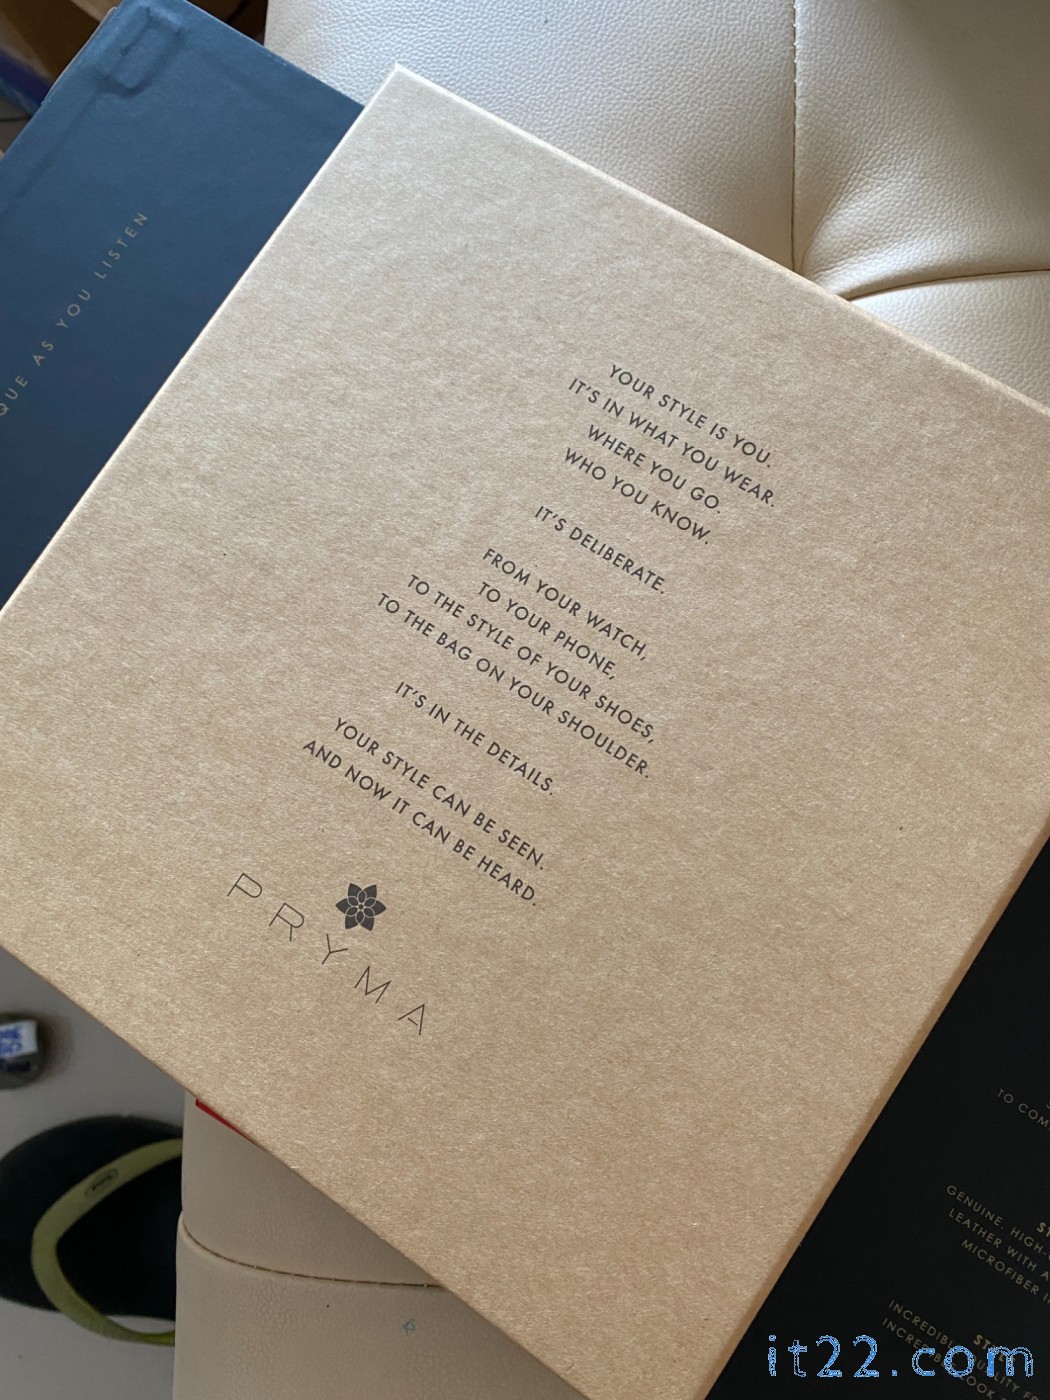 QUE AS YOU LISTEN
YOUR STYLE IS YOU.
IT'S IN WHAT YOU WEAR.
WHERE YOU GO.
WHO YOU KNOW.
IT'S DELIBERATE.
FROM YOUR WATCH,
TO YOUR PHONE,
TO THE STYLE OF YOUR SHOES,
TO THE BAG ON YOUR SHOULDER.
IT'S IN THE DETAILS.
YOUR STYLE CAN BE SEEN.
AND NOW IT CAN BE HEARD.
PRYMA
TO COM
GENUINE, HIGH-
LEATHER WITH A
MICROFIBER
INCREDIBL
INCREDIB
it22.com